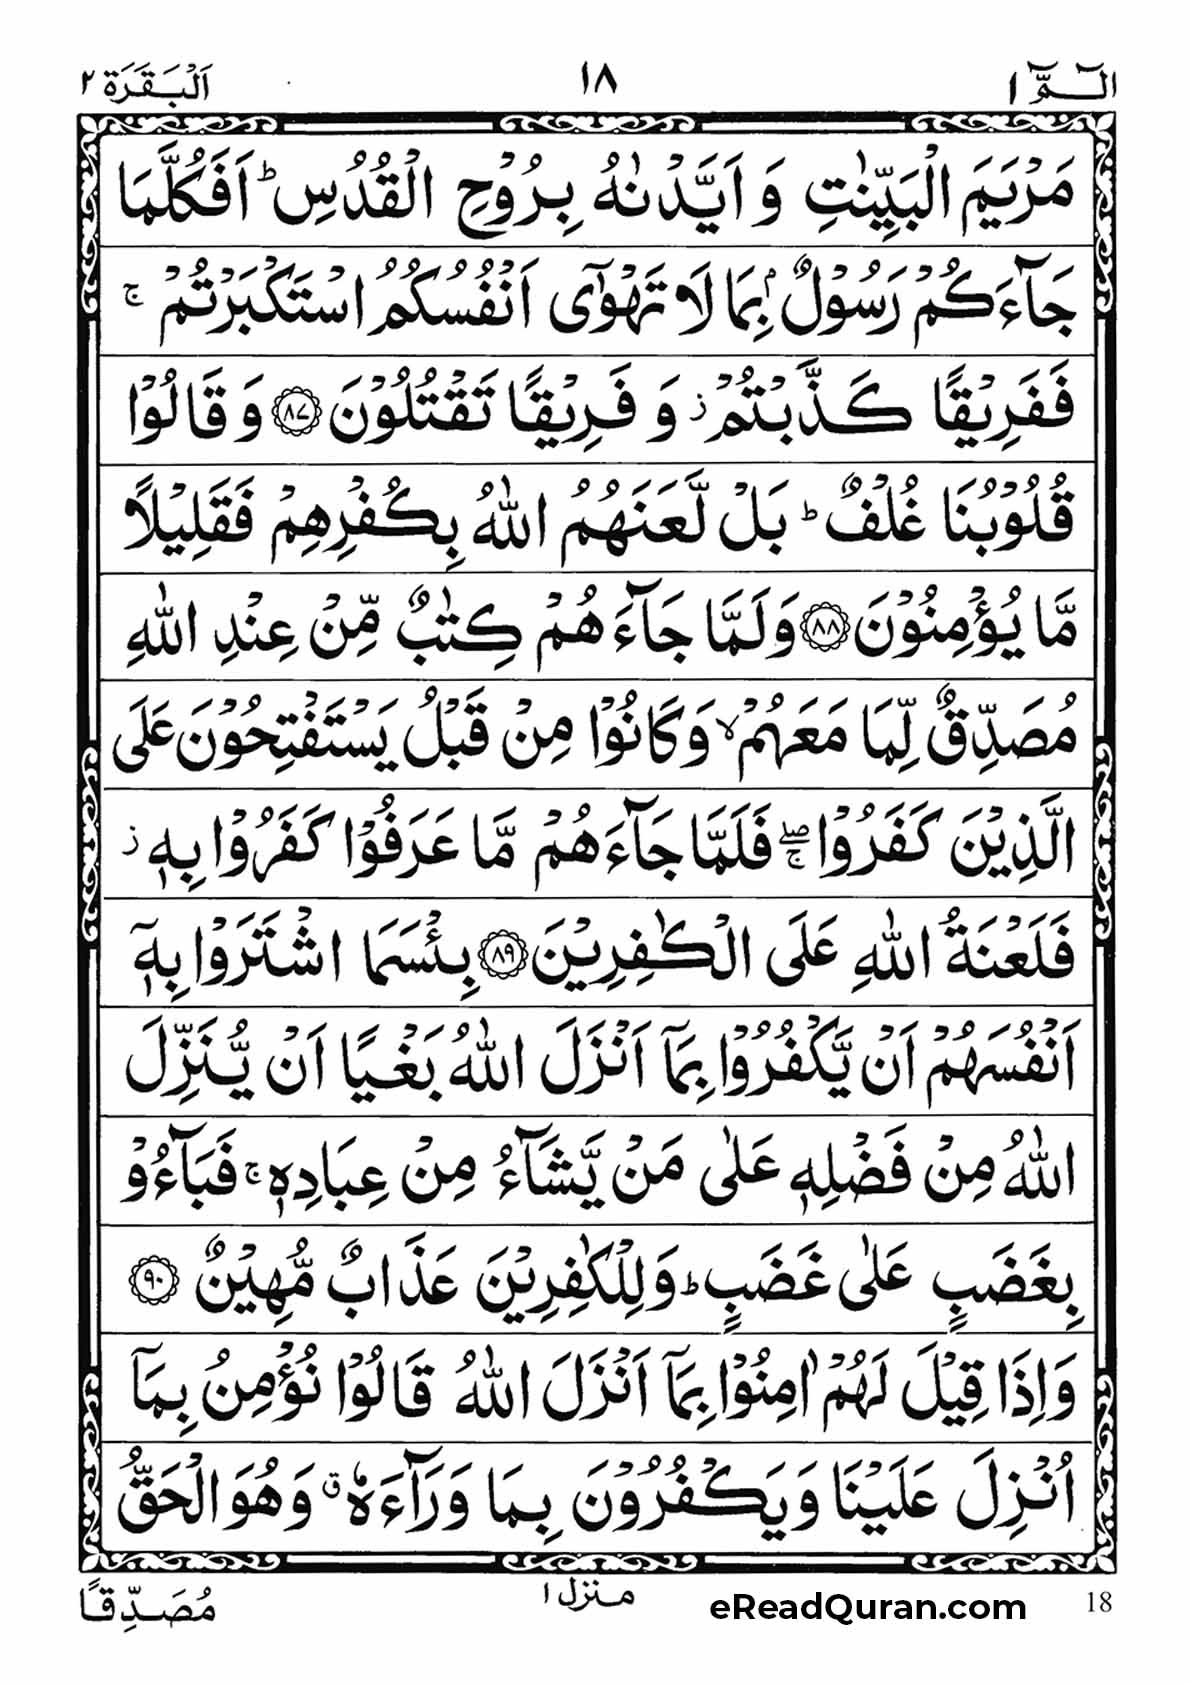 الٓمّٓ ۱ ۱۸ اَلْبَقَرَة ۲
مَرْیَمَ الْبَیِّنٰتِ وَ اَیَّدْنٰهُ بِرُوْحِ الْقُدُسِ ؕ اَفَكُلَّمَا
جَآءَكُمْ رَسُوْلٌۢ بِمَا لَا تَهْوٰۤی اَنْفُسُكُمُ اسْتَكْبَرْتُمْ ۚ
فَفَرِیْقًا كَذَّبْتُمْ ؗ وَ فَرِیْقًا تَقْتُلُوْنَ ﴿۸۷﴾ وَ قَالُوْا
قُلُوْبُنَا غُلْفٌ ؕ بَلْ لَّعَنَهُمُ اللّٰهُ بِكُفْرِهِمْ فَقَلِیْلًا
مَّا یُؤْمِنُوْنَ ﴿۸۸﴾ وَلَمَّا جَآءَ هُمْ كِتٰبٌ مِّنْ عِنْدِ اللّٰهِ
مُصَدِّقٌ لِّمَا مَعَهُمْ ۙ وَ كَانُوْا مِنْ قَبْلُ یَسْتَفْتِحُوْنَ عَلَی
الَّذِیْنَ كَفَرُوْا ۖۚ فَلَمَّا جَآءَ هُمْ مَّا عَرَفُوْا كَفَرُوْا بِهٖ ؗ
فَلَعْنَةُ اللّٰهِ عَلَی الْكٰفِرِیْنَ ﴿۸۹﴾ بِئْسَمَا اشْتَرَوْا بِهٖۤ
اَنْفُسَهُمْ اَنْ یَّكْفُرُوْا بِمَاۤ اَنْزَلَ اللّٰهُ بَغْیًا اَنْ یُّنَزِّلَ
اللّٰهُ مِنْ فَضْلِهٖ عَلٰی مَنْ یَّشَآءُ مِنْ عِبَادِهٖ ۚ فَبَآءُوْ
بِغَضَبٍ عَلٰی غَضَبٍ ؕ وَلِلْكٰفِرِیْنَ عَذَابٌ مُّهِیْنٌ ﴿۹۰﴾
وَاِذَا قِیْلَ لَهُمْ اٰمِنُوْا بِمَاۤ اَنْزَلَ اللّٰهُ قَالُوْا نُؤْمِنُ بِمَاۤ
اُنْزِلَ عَلَیْنَا وَیَكْفُرُوْنَ بِمَا وَرَآءَهٗ ۗ وَهُوَ الْحَقُّ
مُصَدِّقًا
منزل ۱
eReadQuran.com
18